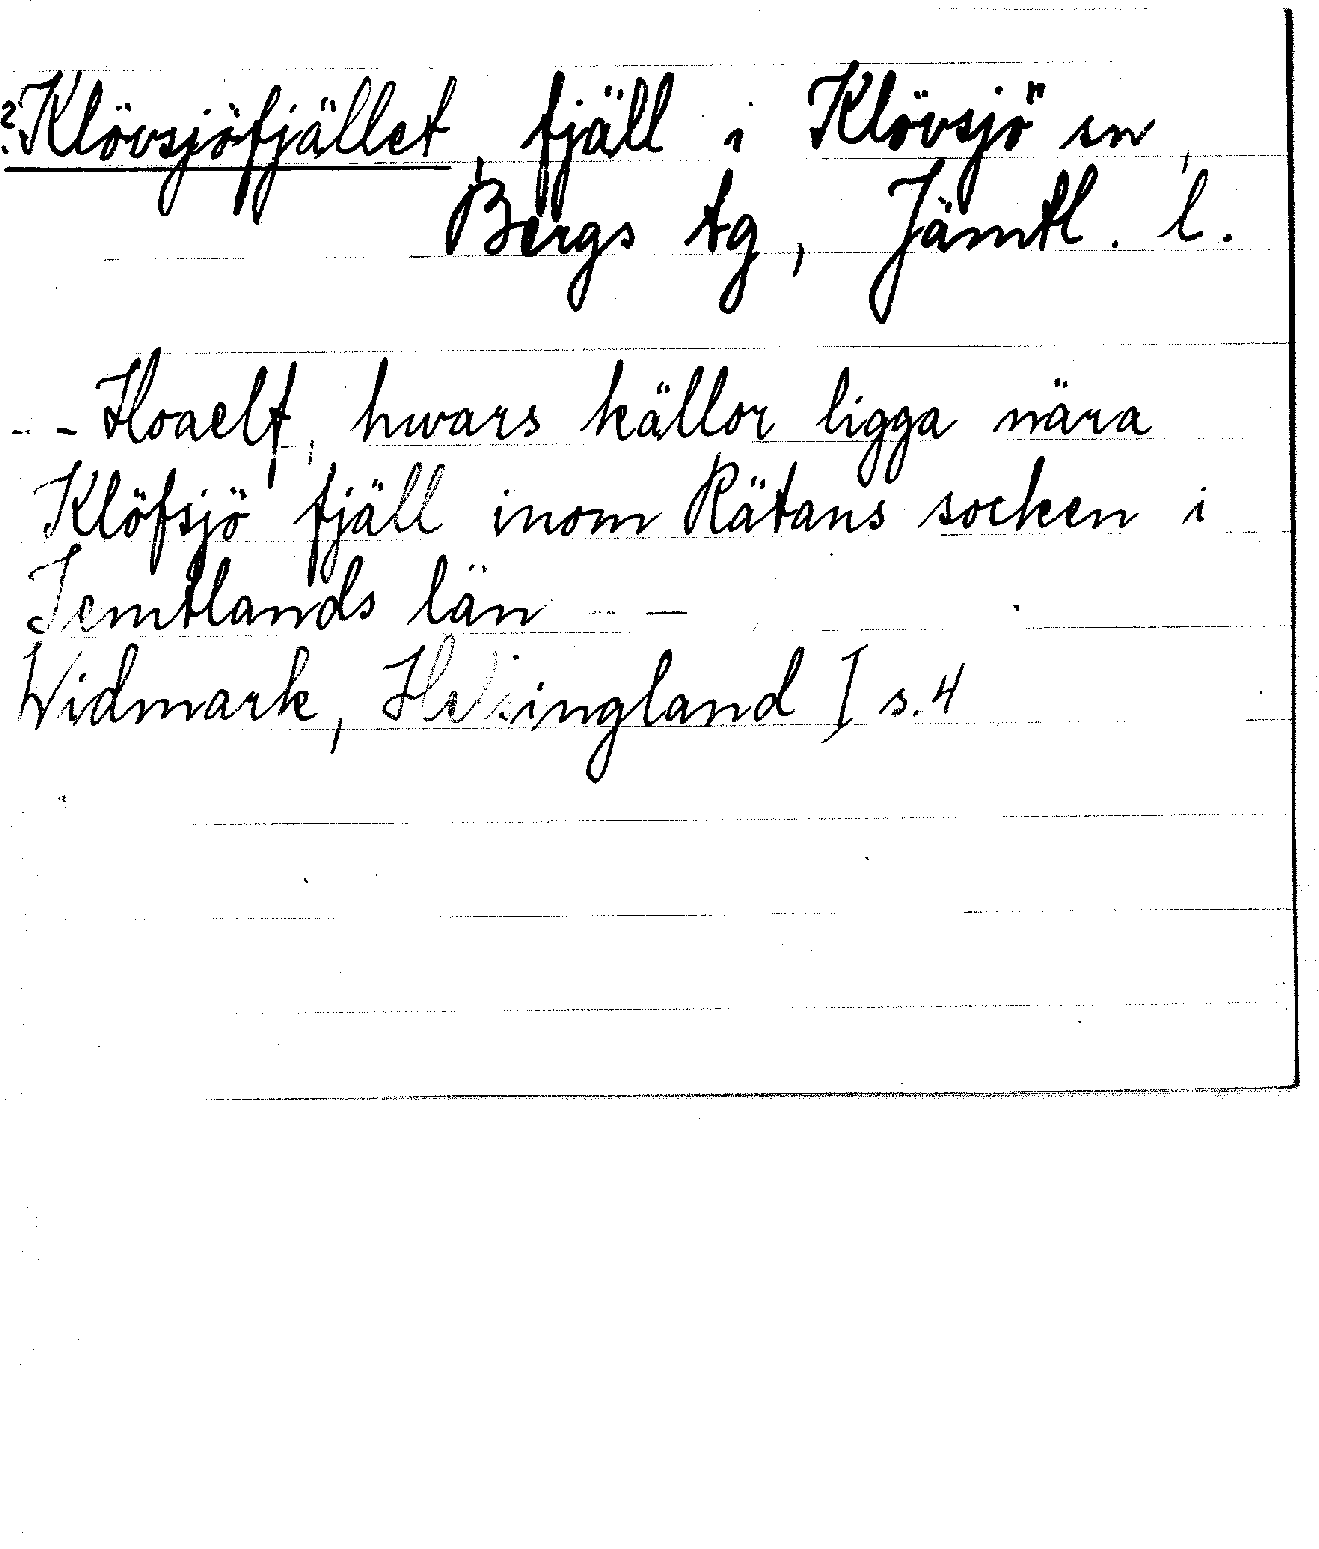 ?Klövsjöfjället, fjäll i Klövsjö sn,
Bergs tg, Jämtl. l.
- - Hoaelf, hwars källor ligga nära
Klöfsjö fjäll inom Rätans socken i
Jemtlands län - -
Widmark, Helsingland I s. 4